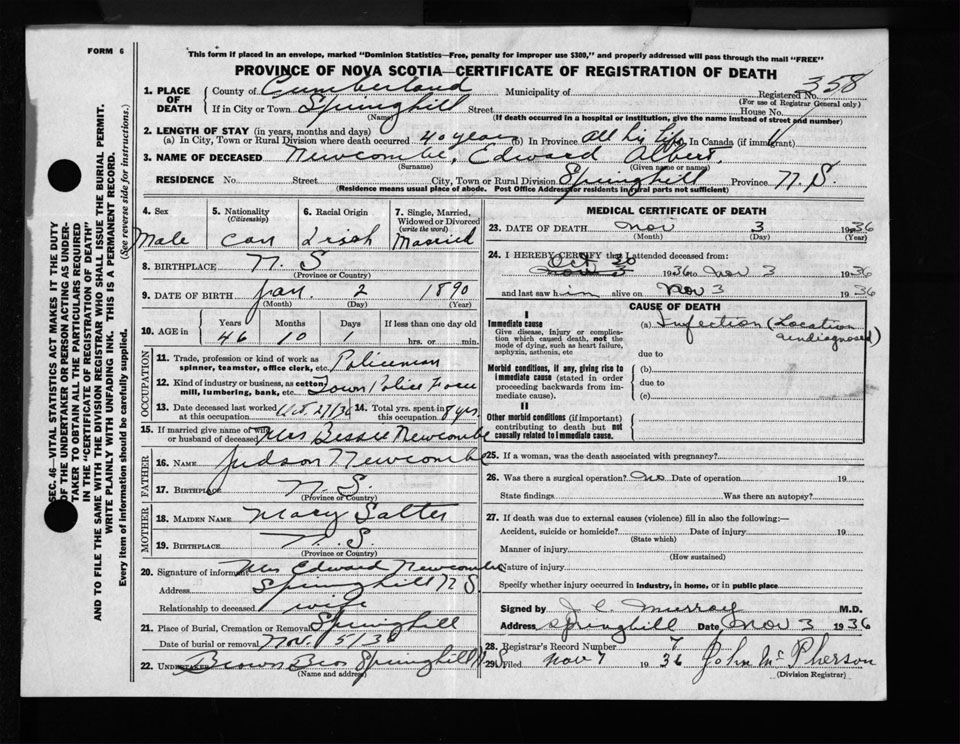 FORM 6
This form if placed in an envelope, marked "Dominion Statistics—Free, penalty for improper use $300," and properly addressed will pass through the mail "FREE"
PROVINCE OF NOVA SCOTIA—CERTIFICATE OF REGISTRATION OF DEATH
358
1. PLACE OF DEATH
County of Cumberland Municipality of Registered No.
(For use of Registrar General only)
If in City or Town Springhill Street House No.
(Name) (If death occurred in a hospital or institution, give the name instead of street and number)
2. LENGTH OF STAY (in years, months and days)
(a) In City, Town or Rural Division where death occurred 40 years (b) In Province All his life In Canada (if immigrant)
3. NAME OF DECEASED Newcombe, Edward Albert.
(Surname) (Given name or names)
RESIDENCE No. Street City, Town or Rural Division Springhill Province N.S.
(Residence means usual place of abode. Post Office Address for residents in rural parts not sufficient)
SEC. 46—VITAL STATISTICS ACT MAKES IT THE DUTY
OF THE UNDERTAKER OR PERSON ACTING AS UNDER-
TAKER TO OBTAIN ALL THE PARTICULARS REQUIRED
IN THE "CERTIFICATE OF REGISTRATION OF DEATH"
AND TO FILE THE SAME WITH THE DIVISION REGISTRAR WHO SHALL ISSUE THE BURIAL PERMIT.
WRITE PLAINLY WITH UNFADING INK. THIS IS A PERMANENT RECORD.
Every item of information should be carefully supplied. (See reverse side for instructions.)
4. Sex
Male
5. Nationality
(Citizenship)
Can
6. Racial Origin
Irish
7. Single, Married, Widowed or Divorced
(write the word)
Married
8. BIRTHPLACE N.S
(Province or Country)
9. DATE OF BIRTH Jan. 2 1890
(Month) (Day) (Year)
10. AGE in
Years Months Days If less than one day old
46 10 1 hrs. or min.
OCCUPATION
11. Trade, profession or kind of work as
spinner, teamster, office clerk, etc. Policeman
12. Kind of industry or business, as cotten
mill, lumbering, bank, etc. Town Police Force
13. Date deceased last worked
at this occupation Oct. 27/36
14. Total yrs. spent in
this occupation 8 yrs.
15. If married give name of wife
or husband of deceased Mrs Bessie Newcombe
FATHER
16. NAME Judson Newcombe
17. BIRTHPLACE N.S.
(Province or Country)
MOTHER
18. MAIDEN NAME Mary Salter
19. BIRTHPLACE N.S.
(Province or Country)
20. Signature of informant Mrs Edward Newcombe
Address Springhill N.S.
Relationship to deceased wife
21. Place of Burial, Cremation or Removal Springhill
Date of burial or removal Nov. 5/36
22. UNDERTAKER Brown Bros Springhill N.S
(Name and address)
MEDICAL CERTIFICATE OF DEATH
23. DATE OF DEATH Nov 3 1936
(Month) (Day) (Year)
24. I HEREBY CERTIFY that I attended deceased from:
Oct 30
Nov 3 1936 to Nov 3 1936
and last saw him alive on Nov 3 1936
CAUSE OF DEATH
I
Immediate cause
Give disease, injury or complica-
tion which caused death, not the
mode of dying, such as heart failure,
asphyxia, asthenia, etc
(a) Infection (Location
undiagnosed)
due to
Morbid conditions, if any, giving rise to
immediate cause (stated in order
proceeding backwards from im-
mediate cause).
(b)
due to
(c)
II
Other morbid conditions (if important)
contributing to death but not
causally related to immediate cause.
25. If a woman, was the death associated with pregnancy?
26. Was there a surgical operation? no Date of operation 19
State findings Was there an autopsy?
27. If death was due to external causes (violence) fill in also the following:—
Accident, suicide or homicide? Date of injury 19
(State which)
Manner of injury
(How sustained)
Nature of injury
Specify whether injury occurred in industry, in home, or in public place
Signed by J. C. Murray M.D.
Address Springhill Date Nov 3 1936
28. Registrar's Record Number 7
29. Filed Nov 7 1936 John McPherson
(Division Registrar)